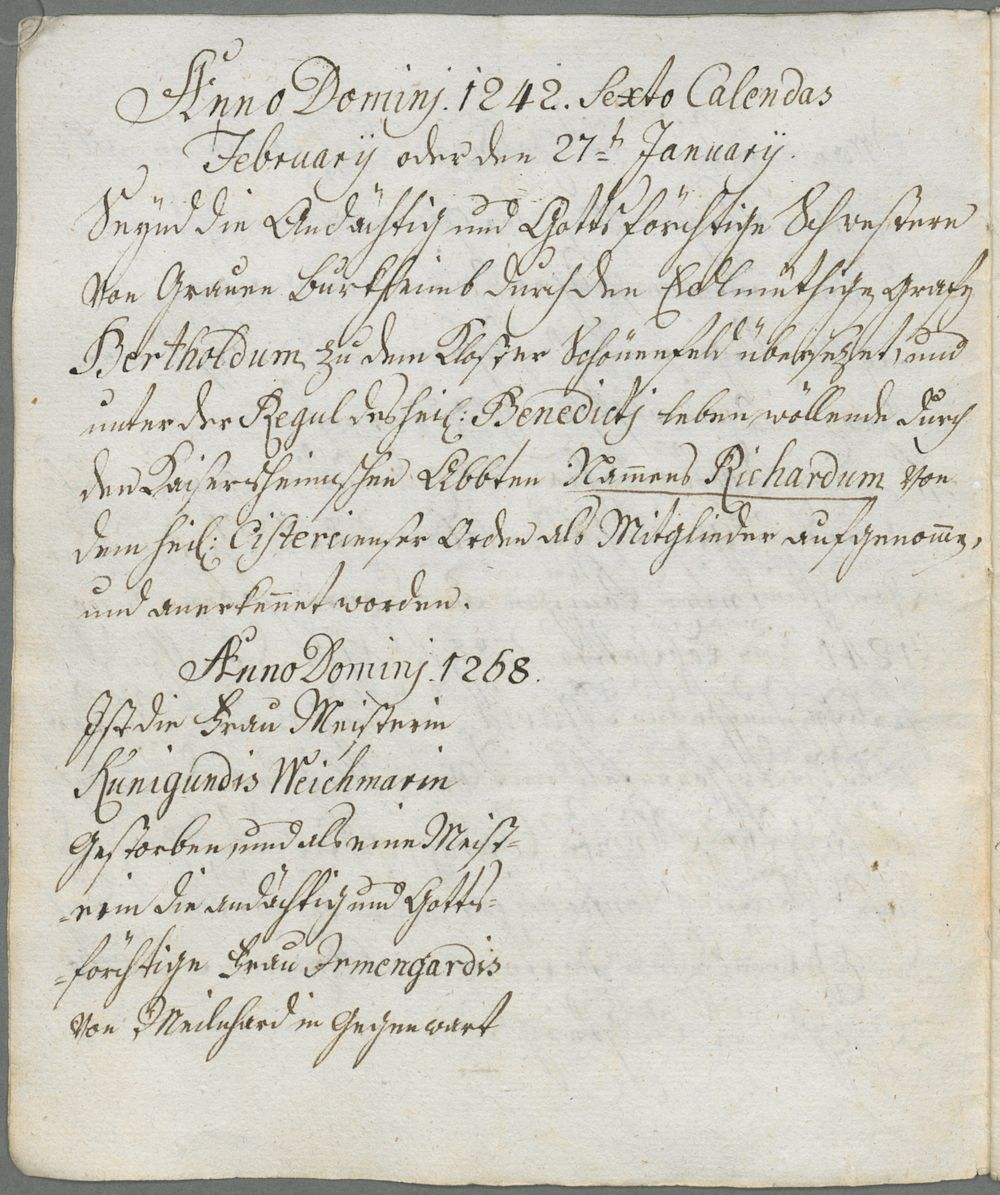 Anno Dominj. 1242. Sexto Calendas
Februarÿ oder den 27t. Januarÿ.
Seynd die Andächtig und Gottsförchtige Schwestere
von Grauen Burkheimb durch den Edlmüthige Grafe
Bertholdum, zu dem Kloster Schönenfeld übersezet, und
unter der Regul des heil: Benedictj leben wöllende durch
den Kaisersheimischen Abbten Nammens Richardum von
dem heil: Cistercienser Orden als Mitglieder aufgenom̄e,
und anerkennet worden.
Anno Dominj. 1268.
Ist die Frau Meisterin
Kunigundis Weichmarin
Gestorben, und als eine Meist-
-erin die andächtig und Gotts-
-förchtige Frau Irmengardis
von Meilnhard in Gegenwart